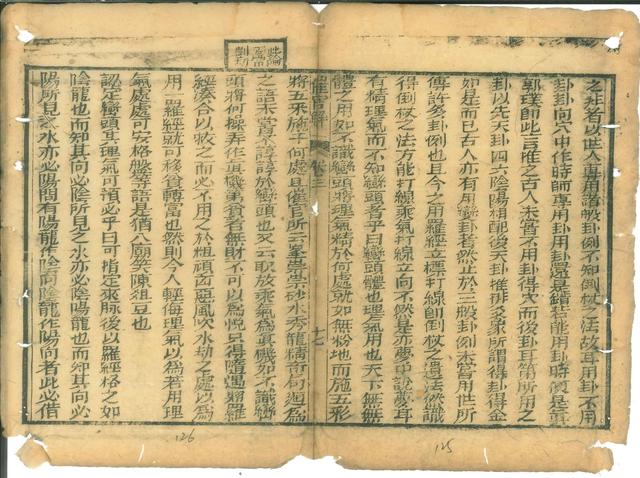 之非者以世人專用諸般卦例不知倒杖之法故耳用卦不用
卦卦向穴中作時師專用卦用卦還是錯若能用卦時便是真
郭璞師此言惟之古人未嘗不用卦得穴而後卦耳第所用之
卦以先天卦四六陰陽相配後天卦推排父
如是而已古人亦有用變卦者然止於三般卦例未嘗用世所
傳許多卦例也且今之用羅經立標打線即倒杖之遺法然識
得倒杖之法方能打線乘氣打線立向不然是亦夢中說夢耳
有精理氣而不知巒頭者乎曰巒頭體也理氣用也天下無無
體之用如不識巒頭將理氣精於何處就如無粉地而施五彩
將五釆施于何處且催官所云
之語未嘗不諄諄於巒頭也又云取放乘氣為真機如不識巒
頭將何操弄作真機弟貧者無財不可以為悅只得隨遇將羅
經湊合以救之而必不用之於粗頑凶惡風吹水劫之處以為
用羅經就可移貧轉富也然則今人輕侮理氣以為若用理
氣處處可安格盤等語是猶八朝奠陳俎豆也
認定巒頭其理氣可預必乎曰可指定來脉後以羅經格之如
陰龍也而知其向必陰所見之水亦必陰陽龍也而知其向必
陽所見之水亦必陽間有陽龍作陰向陰龍作陽向者此必借
卷三
十七
125
126